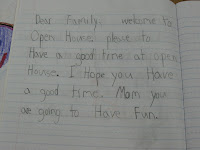 Dear Family, welcome to
Open House please to
Have a good time at open
House. I Hope you Have
a good time. Mom you
are going to Have Fun.